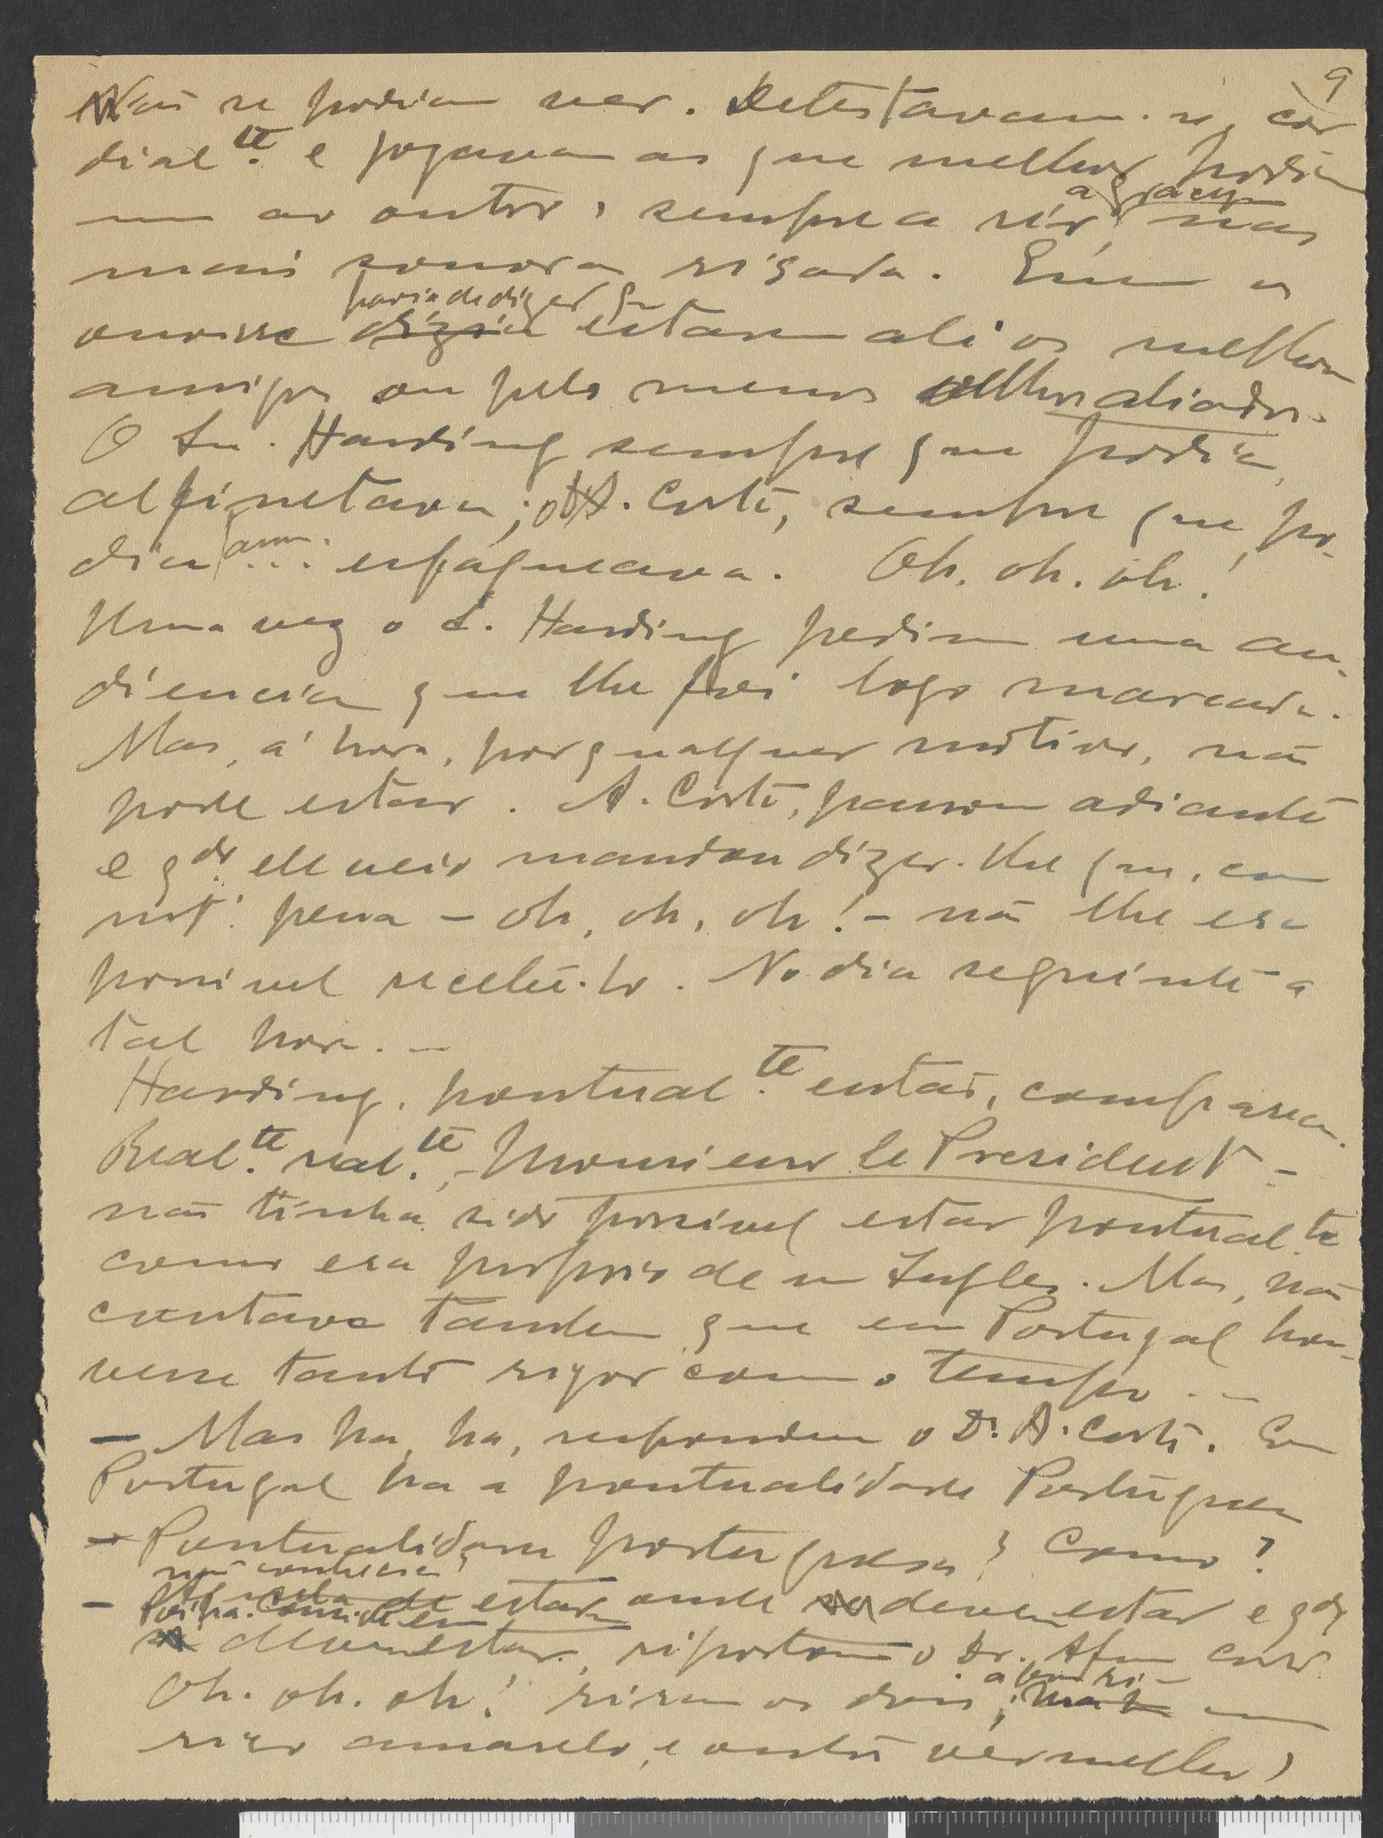 9
Não se podiam ver. Detestavam-se, cor
dialte. e jogavam as que melhor podiam
um ao outro, sempre a rir, nas
mais sonora risada. Quem os
havia de dizer q
ouvisse dizia estarem ali os melhores
amigos ou pelo menos velhos aliados.
O Sr. Harding sempre que podia,
alfinetava; o A. Costa, sempre que po-
dia ... esfaqueava. Oh, oh, oh!
Uma vez o S. Harding pediu uma au-
diencia que lhe foi logo marcada.
Mas, á hora, por qualquer motivo, não
pode estar. A. Costa, passou adiante
e qdo. ele veio mandou dizer-lhe que, com
mta. pena - oh, oh, oh! - não lhe era
possivel recebê-lo. No dia seguinte a
tal hora. -
Harding, pontualte. então, compareceu.
Realte. realte., Monsieur le President -
não tinha sido possivel estar pontualte
como era proprio de um Inglez. Mas, não
contava tambem que em Portugal hou-
vesse tanto rigor com o tempo. -
- Mas ha, ha, respondeu o Dr. A. Costa. Em
Portugal ha a pontualidade Portuguesa
- Pontualidade portuguesa? Como?
não conhecia?
- estar onde devem estar e qdo
devem estar, ripostou o Dr. Afonso Costa
Oh. oh. oh! riram os dois, um
riso amarelo, e outro vermelho)